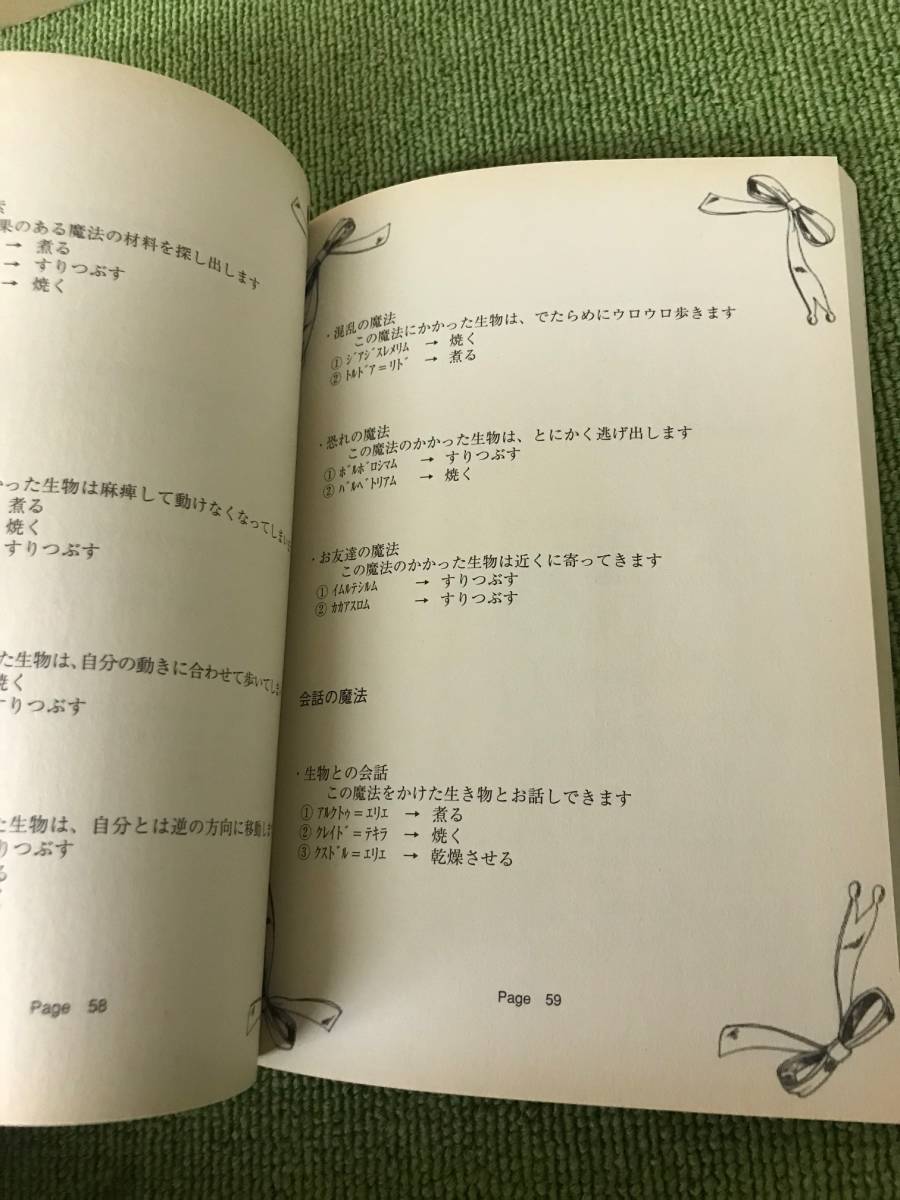 果のある魔法の材料を探し出します
→ 煮る
→ すりつぶす
→ 焼く
かった生物は麻痺して動けなくなってしまいま
煮る
焼く
すりつぶす
た生物は、自分の動きに合わせて歩いてしま
焼く
すりつぶす
た生物は、自分とは逆の方向に移動しま
りつぶす
る
Page 58
・混乱の魔法
この魔法にかかった生物は、でたらめにウロウロ歩きます
① ｼﾞｱｼﾞｽﾚﾒﾘﾑ → 焼く
② ﾄﾙﾄﾞｱ＝ﾘﾄﾞ → 煮る
・恐れの魔法
この魔法のかかった生物は、とにかく逃げ出します
① ﾎﾞﾙﾎﾞﾛｼﾏﾑ → すりつぶす
② ﾊﾞﾙﾍﾞﾄﾘｱﾑ → 焼く
・お友達の魔法
この魔法のかかった生物は近くに寄ってきます
① ｲﾑﾙﾃｼﾙﾑ → すりつぶす
② ｶｶｱｽﾛﾑ → すりつぶす
会話の魔法
・生物との会話
この魔法をかけた生き物とお話しできます
① ｱﾙｸﾄｩ＝ｴﾘｴ → 煮る
② ｸﾚｲﾄﾞ＝ﾃｷﾗ → 焼く
③ ｸｽﾄﾞﾙ＝ｴﾘｴ → 乾燥させる
Page 59